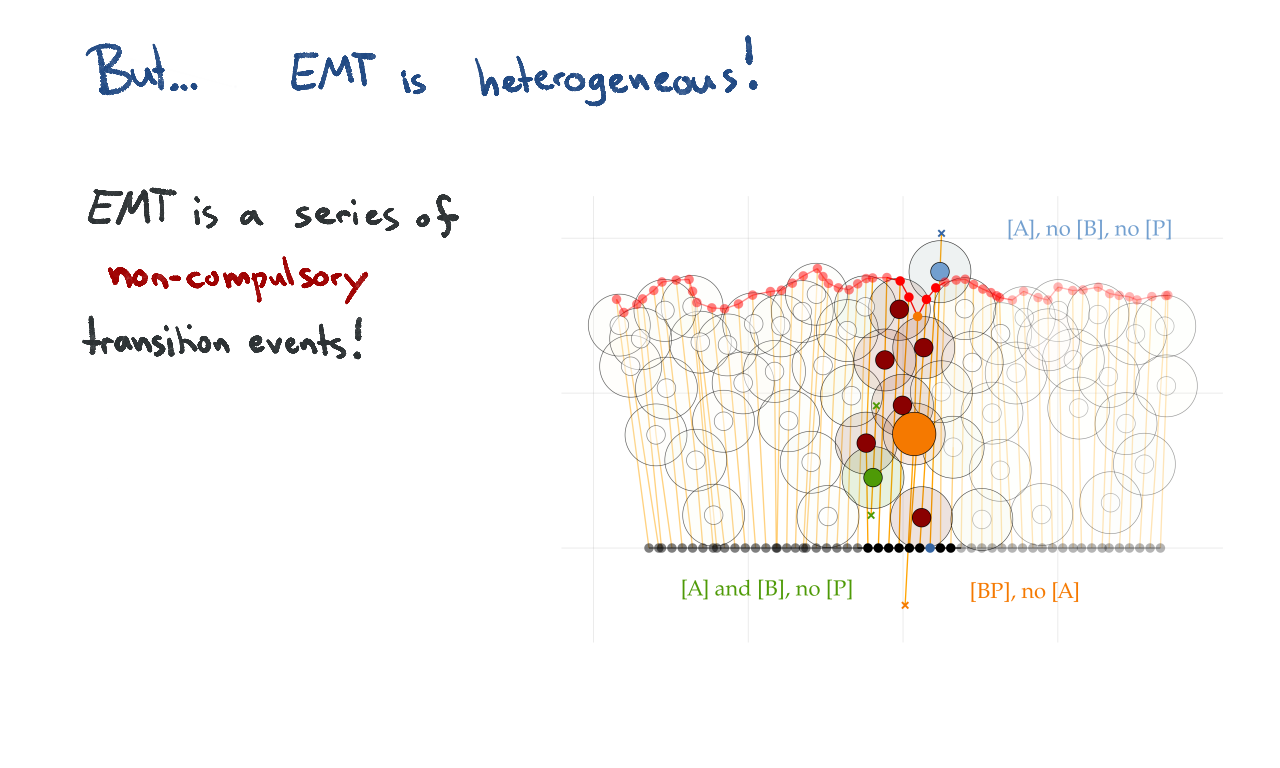 But... EMT is heterogeneous!
EMT is a series of
non-compulsory
transition events!
[A], no [B], no [P]
[A] and [B], no [P]
[BP], no [A]